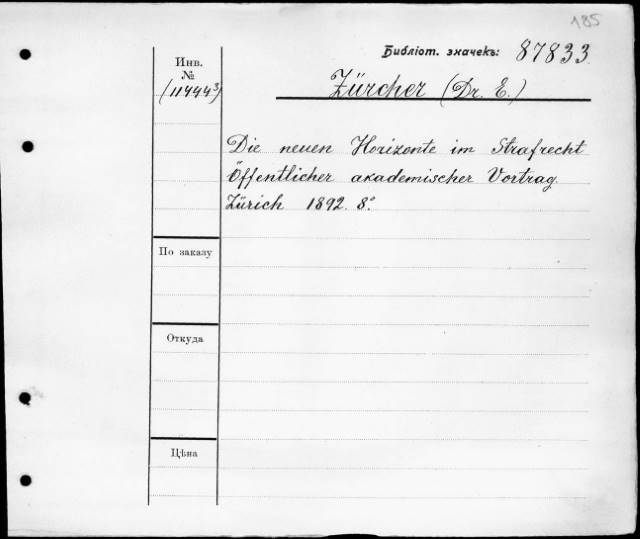 185
Библіот. значекъ: 87833
Инв.
№
(11444³)
Zürcher (Dr. E.)
Die neuen Horizonte im Strafrecht
Öffentlicher akademischer Vortrag.
Zürich 1892. 8°.
По заказу
Откуда
Цѣна